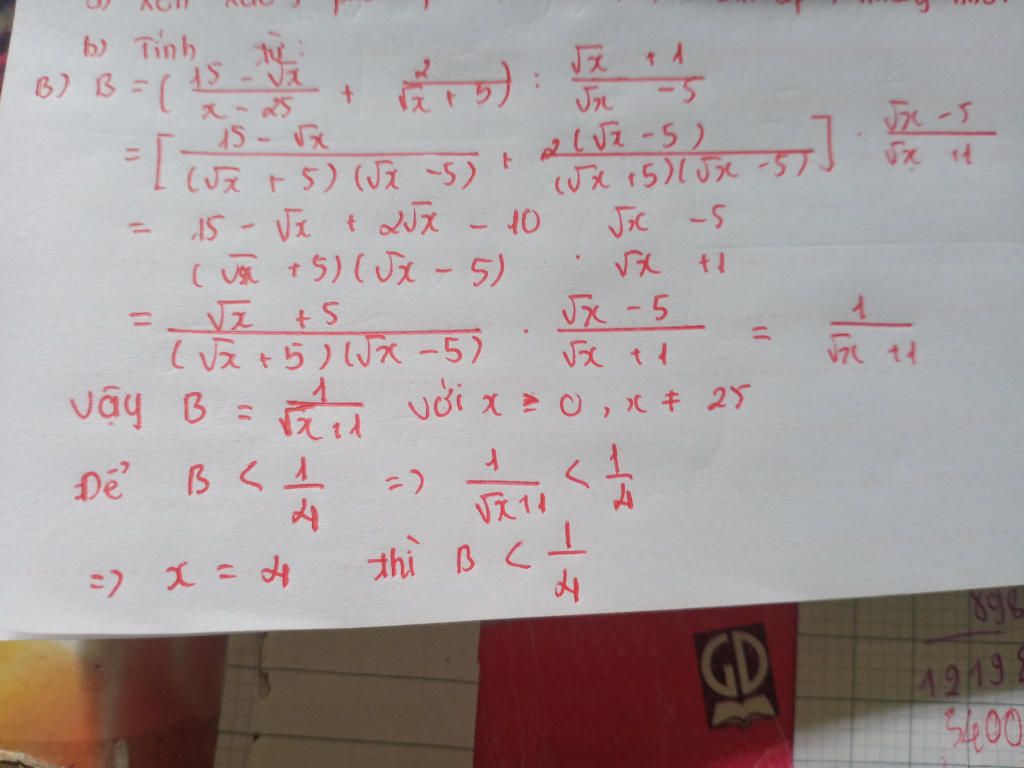 b) Tính từ:
B) B = ( 15 - √x / x - 25 + 2 / √x + 5 ) : √x + 1 / √x - 5
= [ 15 - √x / (√x + 5)(√x - 5) + 2(√x - 5) / (√x + 5)(√x - 5) ] . √x - 5 / √x + 1
= 15 - √x + 2√x - 10 / (√x + 5)(√x - 5) . √x - 5 / √x + 1
= √x + 5 / (√x + 5)(√x - 5) . √x - 5 / √x + 1 = 1 / √x + 1
Vậy B = 1 / √x + 1 với x ≥ 0, x ≠ 25
Để B < 1/4 => 1 / √x + 1 < 1/4
=> x = 4 thì B < 1/4
GD
898
12198
3400